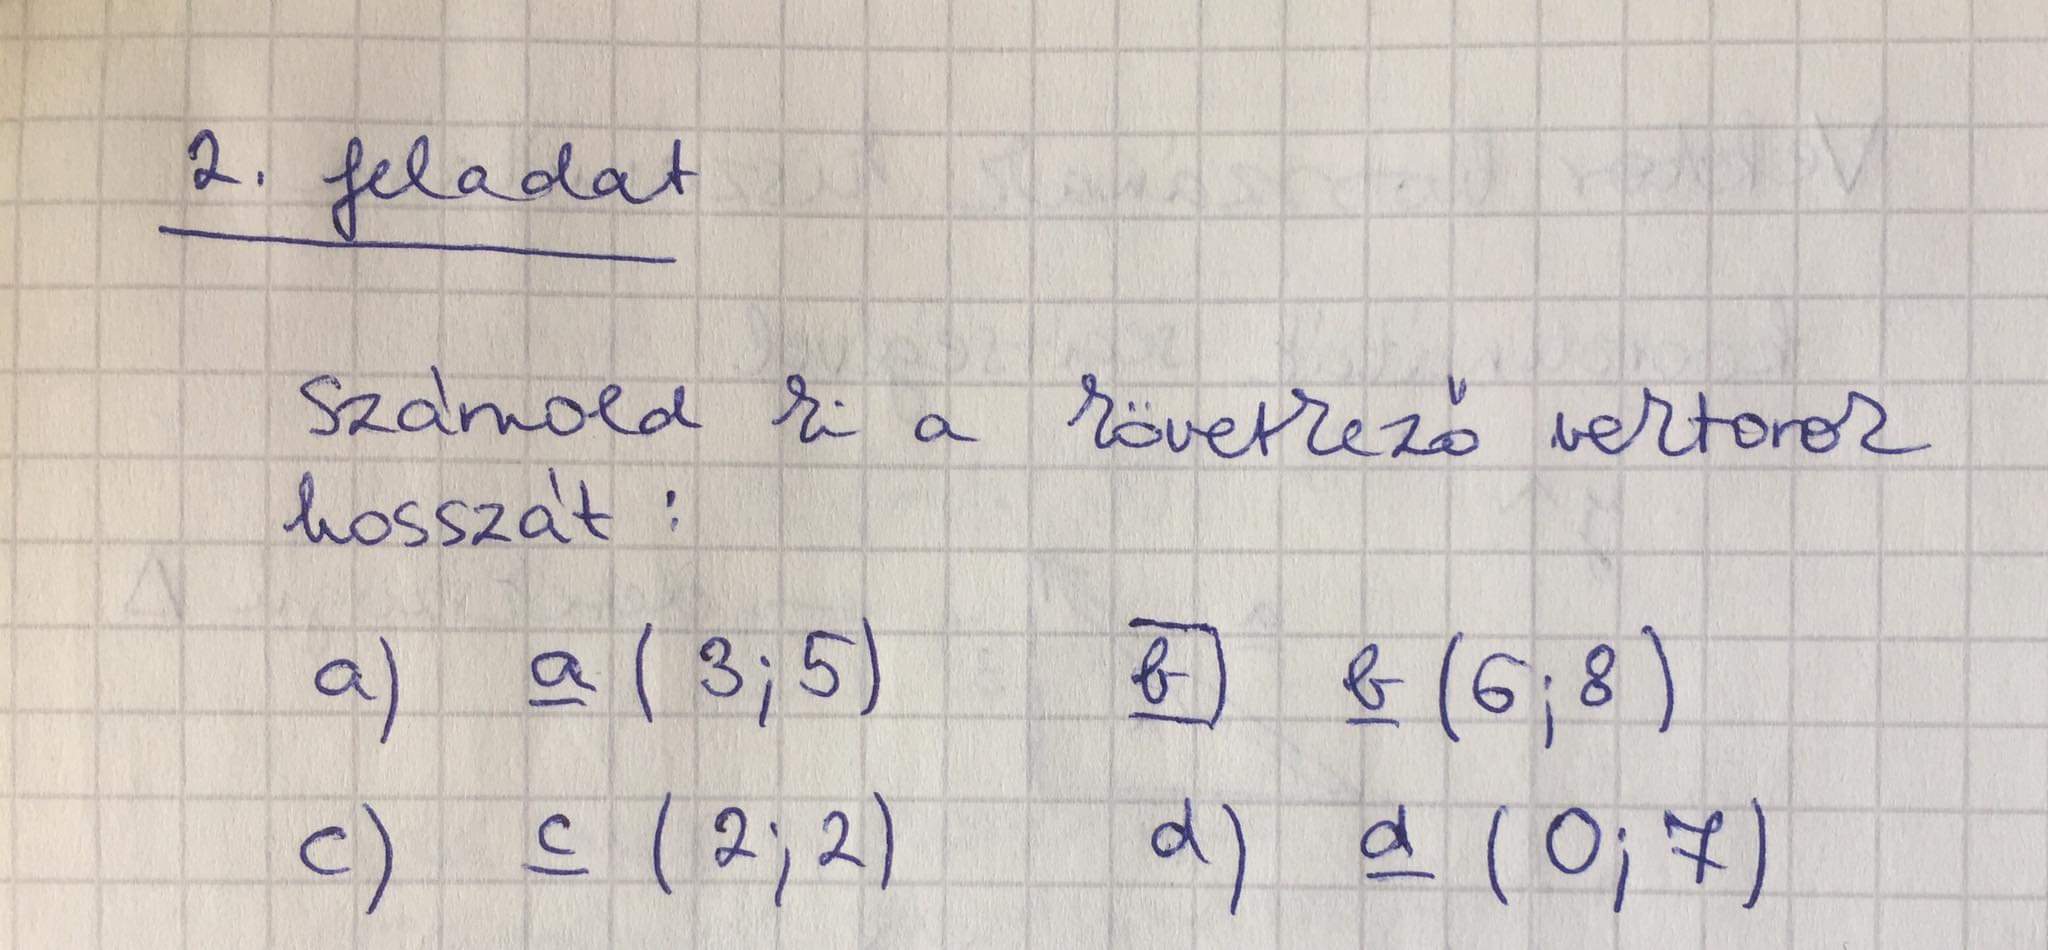 2. feladat
Számold ki a következő vektorok
hosszát :
a) a ( 3;5) b) b (6;8)
c) c ( 2;2) d) d ( 0;7)